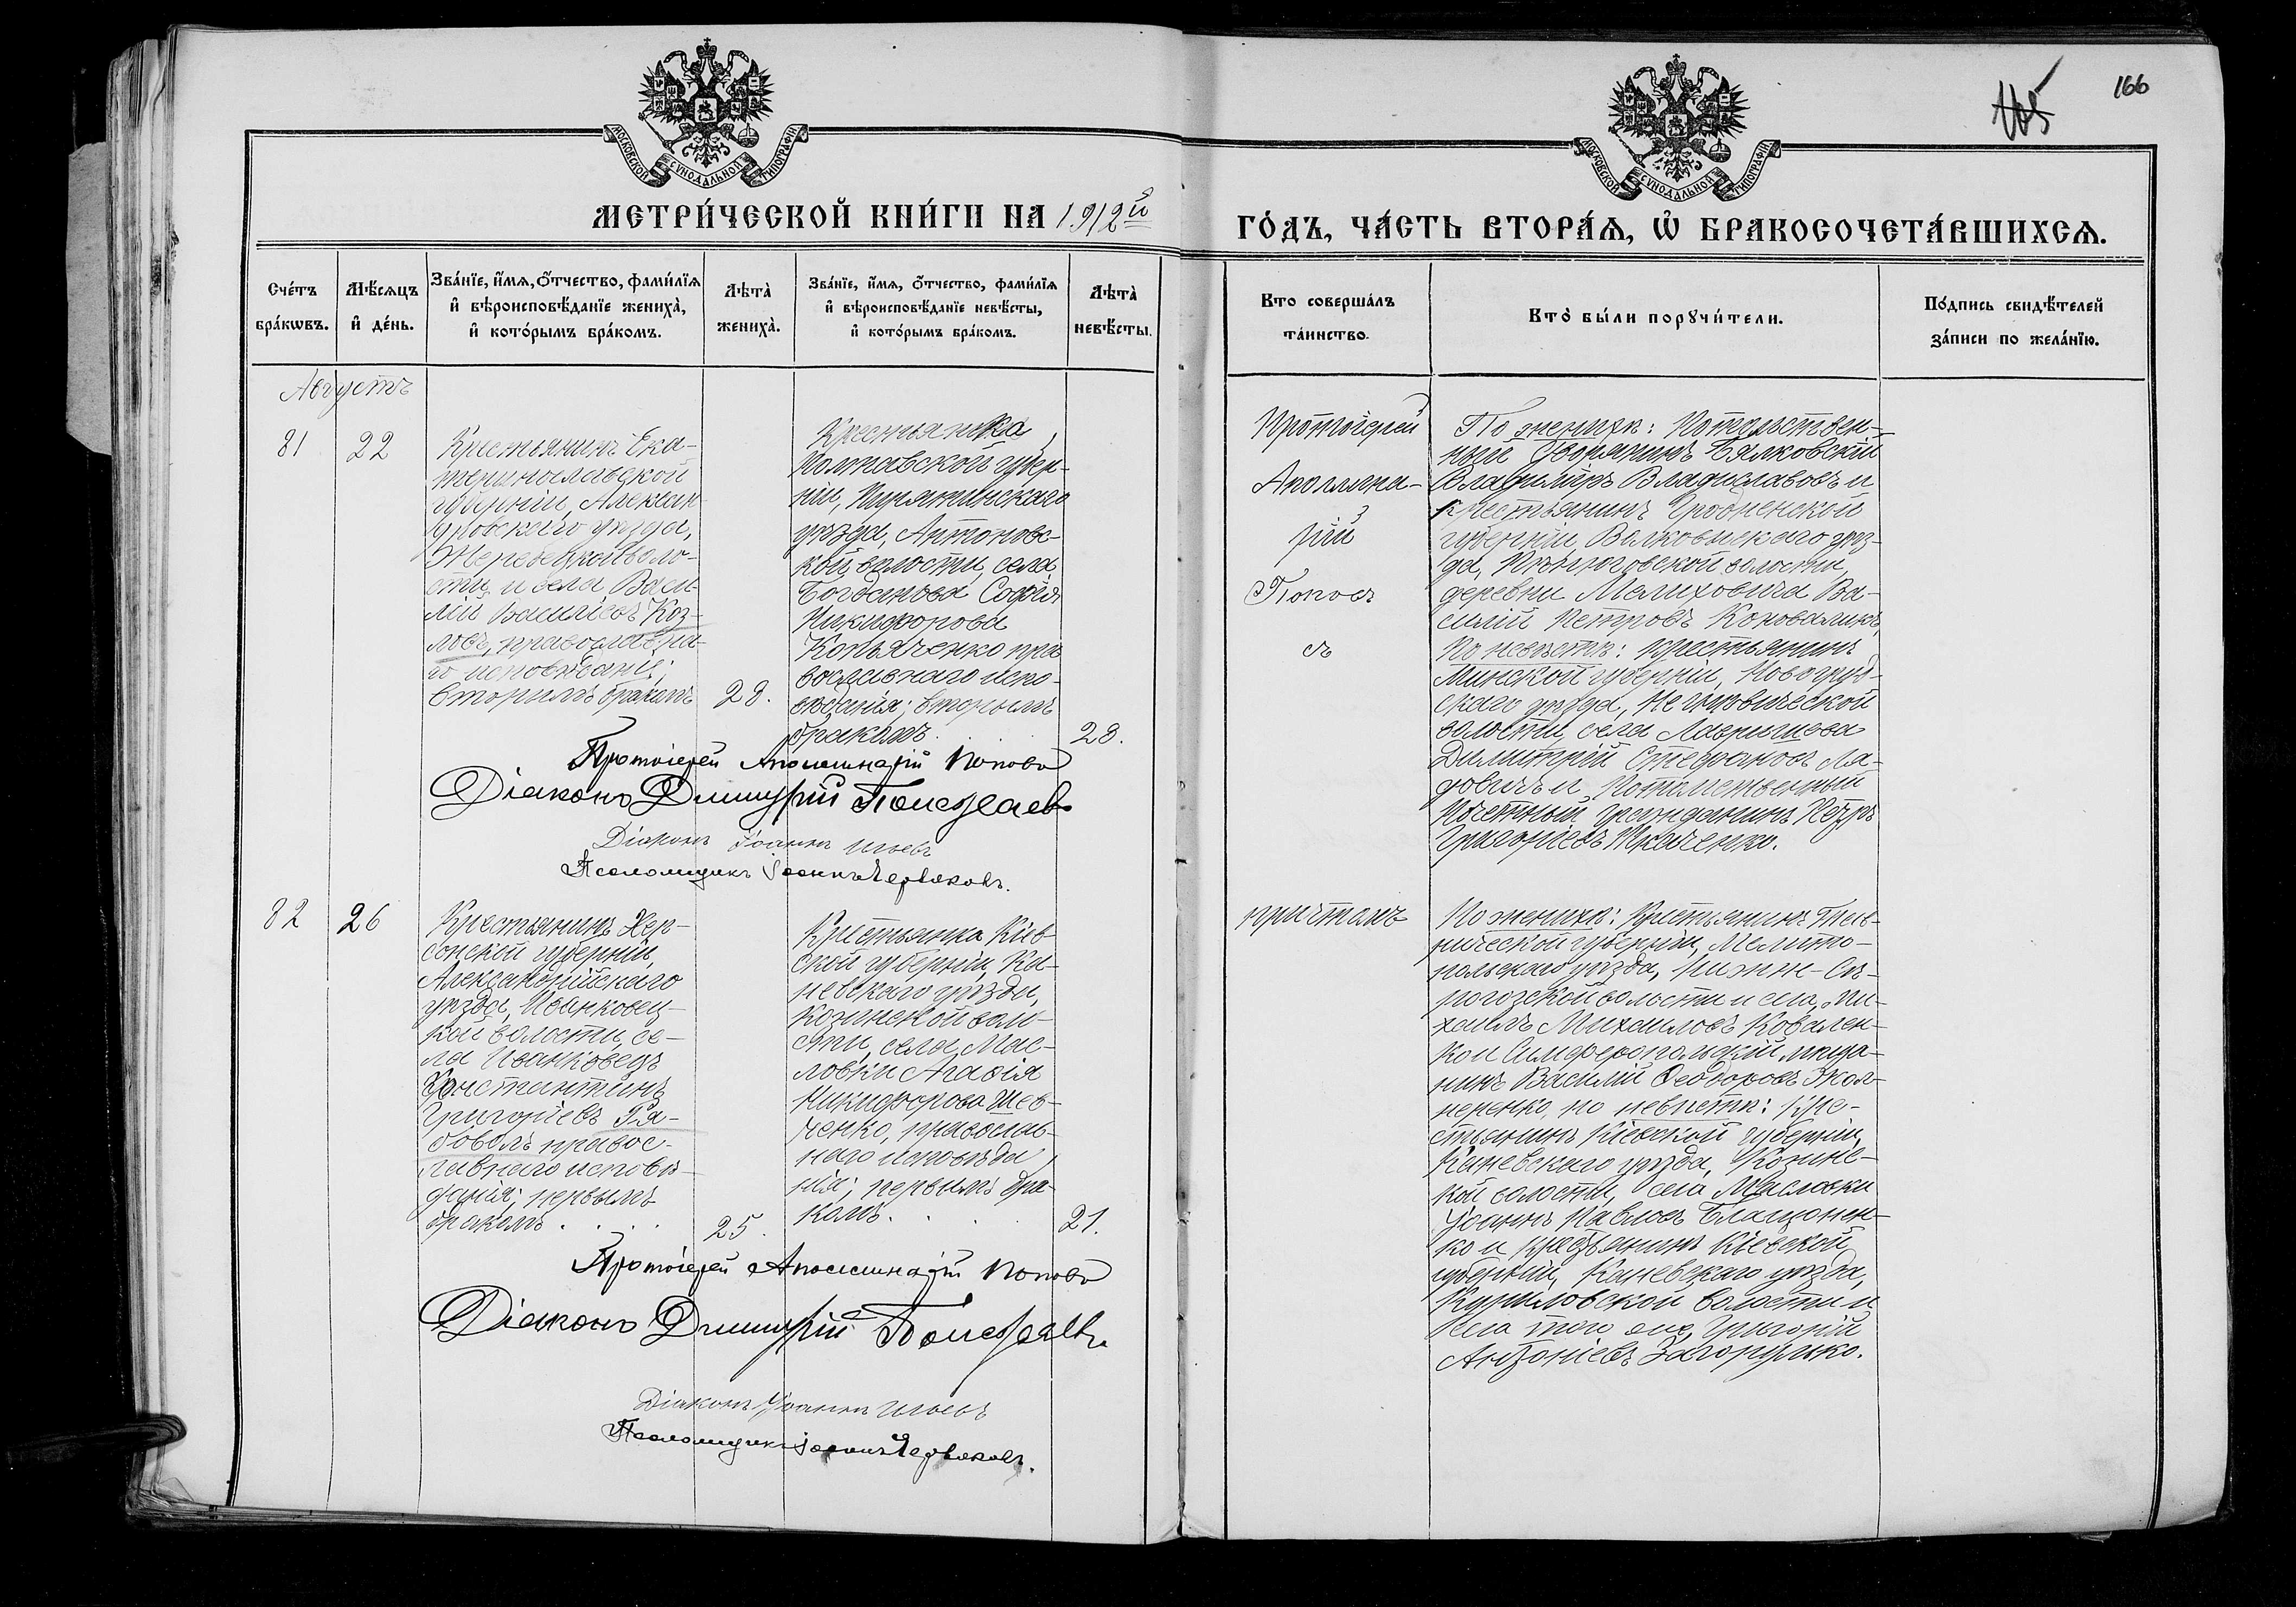 166
165
МОСКОВСКОЙ СѴНОДАЛЬНОЙ ТИПОГРАФІИ
МОСКОВСКОЙ СѴНОДАЛЬНОЙ ТИПОГРАФІИ
МЕТРИ́ЧЕСКОЙ КНИ́ГИ НА 1912й
ГО́ДЪ, ЧА́СТЬ ВТОРА́Ѧ, Ѡ҆ БРАКОСОЧЕТА́ВШИХСѦ.
Сче́тъ
бра́кѡвъ.
Мѣ́сѧцъ
и҆ де́нь.
Зва́нїе, и҆́мѧ, ѻ҆́тчество, фами́лїѧ
и҆ вѣроисповѣ́данїе жениха̀,
и҆ кото́рымъ бра́комъ.
Лѣта̀
жениха̀.
Зва́нїе, и҆́мѧ, ѻ҆́тчество, фами́лїѧ
и҆ вѣроисповѣ́данїе невѣ́сты,
и҆ кото́рымъ бра́комъ.
Лѣта̀
невѣ́сты.
Кто соверша́лъ
та́инство.
Кто̀ бы́ли порꙋчи́тели.
По́дпись свидѣ́телей
за́писи по жела́нїю.
Августъ
81
22
Крестьянинъ Ека-
теринославской
губерніи, Алексан-
дровскаго уѣзда,
воло-
сти и села, Васи-
лій Васильевъ Коз-
ловъ, православна-
го исповѣданія;
вторымъ бракомъ
28.
Крестьянка
Полтавской губер-
ніи, Пирятинскаго
уѣзда, Антоновс-
кой волости, села
Богданова Софія
Никифорова
Копьяченко пра
вославнаго испо-
вѣданія; вторымъ
бракомъ.
28.
Протоіерей
Аполлина-
рій
Поповъ
съ
По женихѣ: Потомствен-
ный дворянинъ Бялковскій
Владиміръ Владиславовъ и
крестьянинъ Гродненской
губерніи, Волковискаго уѣз-
да, волости,
деревни Малиховича Ва-
силій Петровъ Коновалик,
По невѣстѣ: крестьянинъ
Минской губерніи, Новогруд-
скаго уѣзда, Негнѣвической
волости, села Лаврышева
Димитрій Стефановъ Ла-
довичъ и Потомственный
Почетный гражданинъ Петръ
Григорьевъ Ткаченко.
Протоіерей Аполлинарій Поповъ
Діаконъ Димитрій
Діаконъ Іоаннъ
Псаломщикъ Іоаннъ Червяковъ.
82
26
Крестьянинъ Хер-
сонской губерніи,
Александрійскаго
уѣзда, Иванковец-
кой волости, се-
ла Иванковецъ
Константинъ
Григорьевъ Ря-
боволъ правос-
лавнаго исповѣ-
данія; первымъ
бракомъ . . . .
25.
Крестьянка Кіев-
ской губерніи, Ка-
невскаго уѣзда,
Козинской воло-
сти, села Мас-
ловки Агафія
Никифорова Шев-
ченко, православ-
наго исповѣда
нія; первымъ бра-
комъ. . .
21.
причтомъ
По женихѣ: Крестьянинъ Тав-
рической губерніи, Мелито-
польскаго уѣзда, Нижне-Сѣ-
рогозской волости и села, Ми-
хаилъ Михаиловъ Ковален-
ко и Симферопольскій мѣща-
нинъ Василій Ѳеодоровъ Жол-
неренко, по невѣстѣ: кре-
стьянинъ Кіевской губерніи,
Каневскаго уѣзда, Козинс-
кой волости, села Масловки
Іоаннъ Павловъ
ко и крестьянинъ Кіевской
губерніи, Каневскаго уѣзда,
Куриловской волости и
села того же, Григорій
Антоніевъ Загорулько.
Протоіерей Аполлинарій Поповъ
Діаконъ Димитрій
Діаконъ Іоаннъ
Псаломщикъ Іоаннъ Червяковъ.